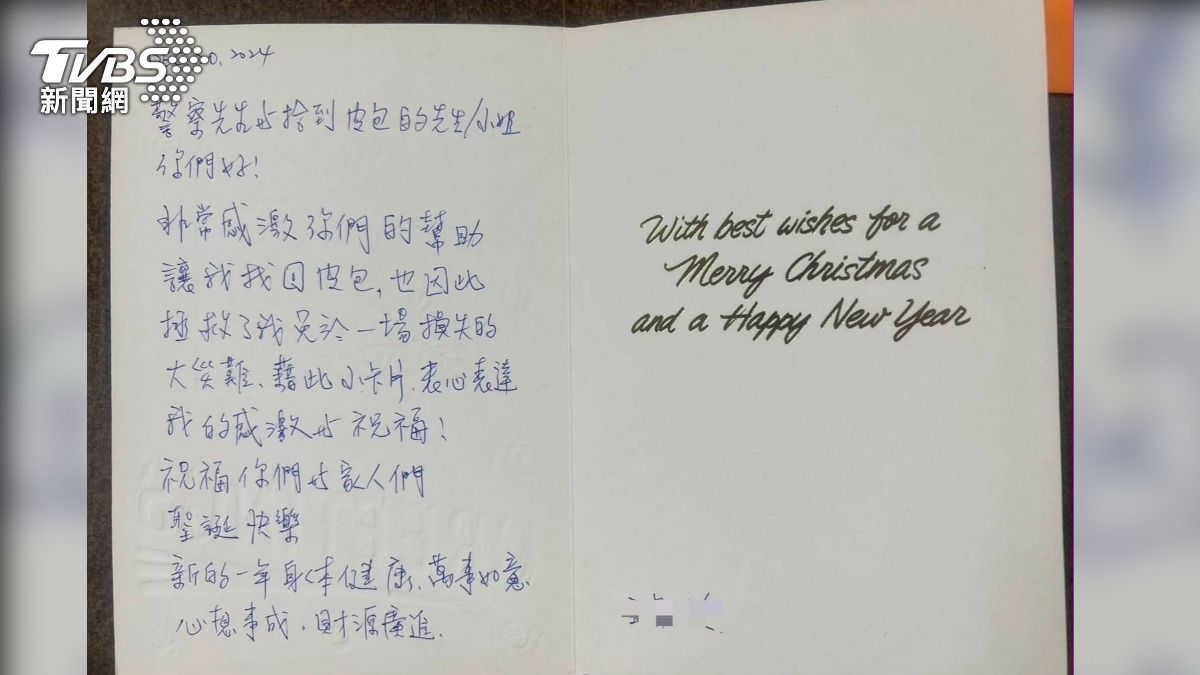 TVBS
新聞網
0, 2024
警察先生与拾到皮包的先生/小姐
你們好!
非常感激你們的幫助
讓我找回皮包,也因此
拯救了我免於一場損失的
大災難、藉此小卡片、衷心表達
我的感激与祝福!
祝福你們与家人們
聖誕快樂
新的一年身体健康、萬事如意、
心想事成、財源廣進.
With best wishes for a
Merry Christmas
and a Happy New Year